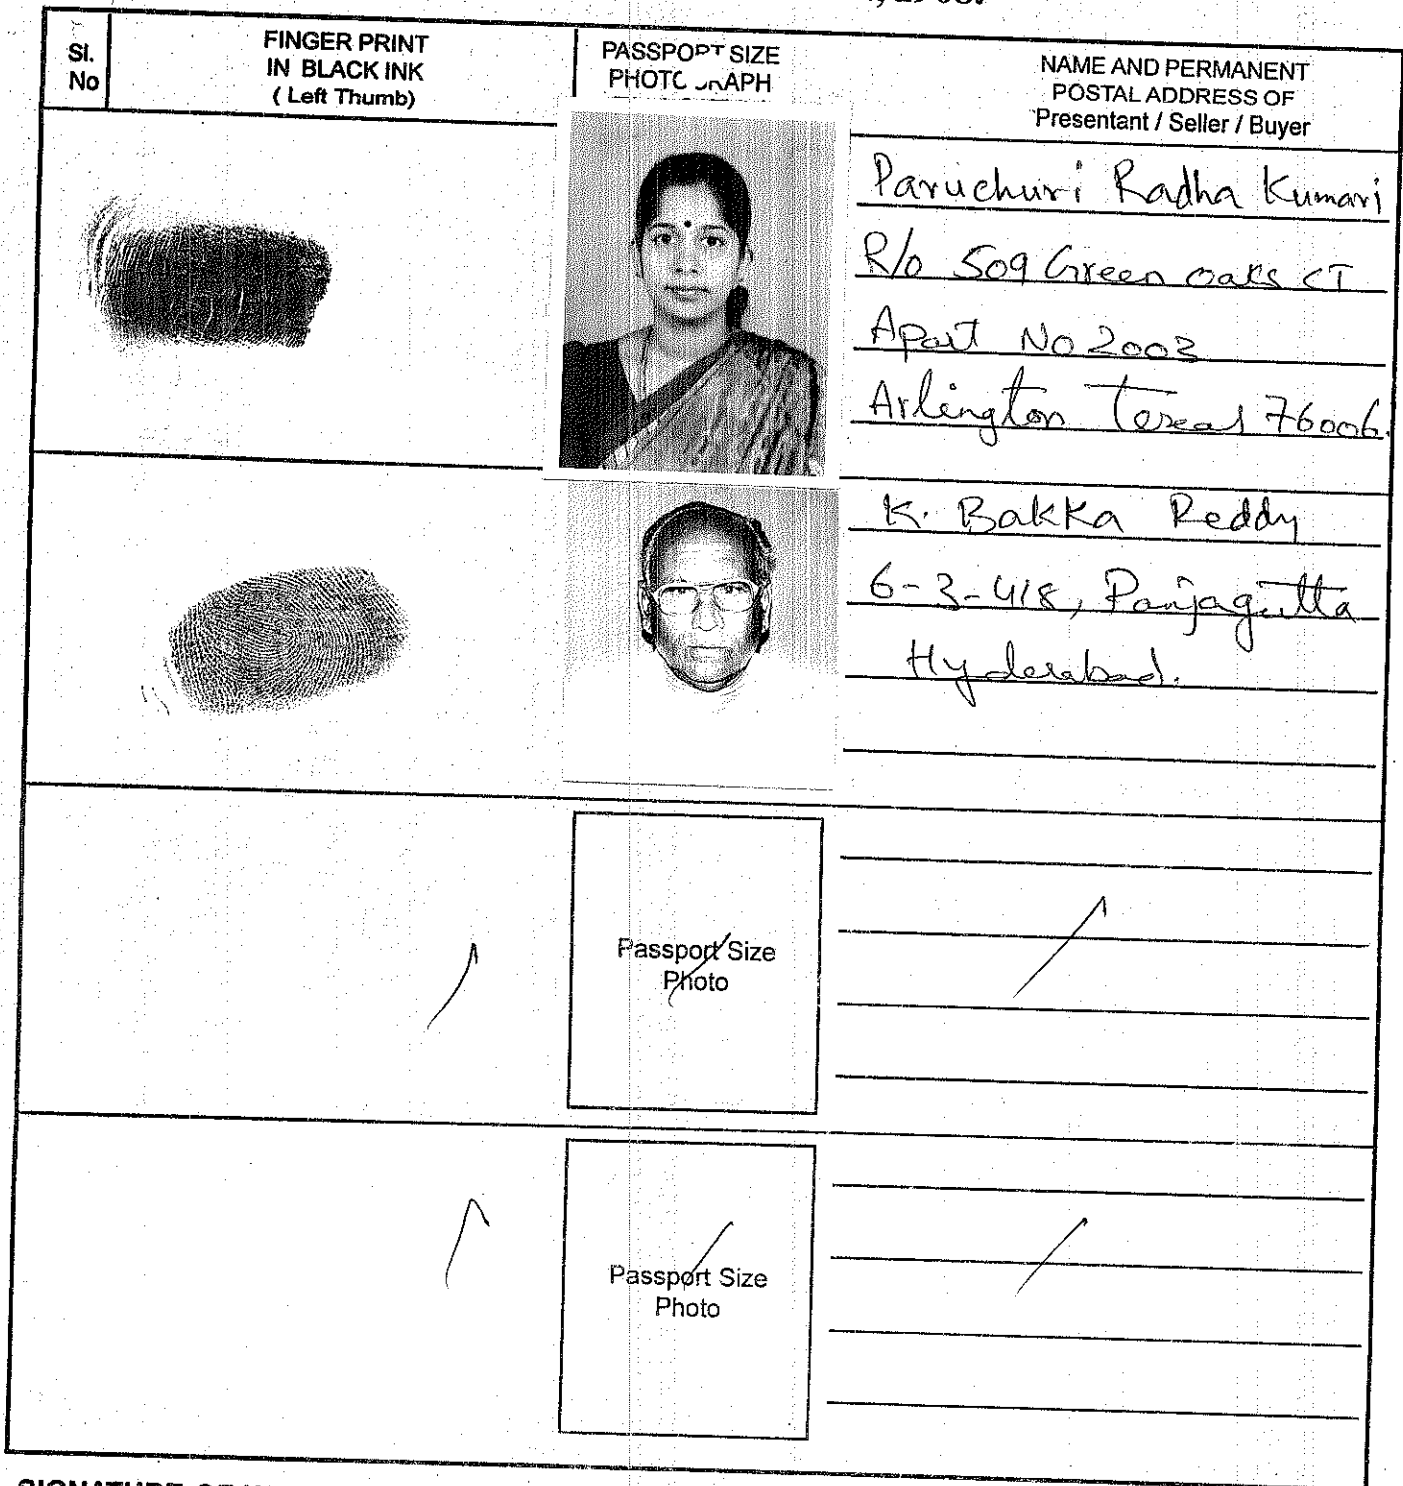 Sl.
No
FINGER PRINT
IN BLACK INK
( Left Thumb)
PASSPORT SIZE
PHOTOGRAPH
NAME AND PERMANENT
POSTAL ADDRESS OF
Presentant / Seller / Buyer
Paruchuri Radha Kumari
R/o 509 Green oaks CT
Apart No 2003
Arlington Texas 76006.
K. Bakka Reddy
6-3-418, Panjagutta
Hyderabad.
Passport Size
Photo
Passport Size
Photo
SIGNATURE OF